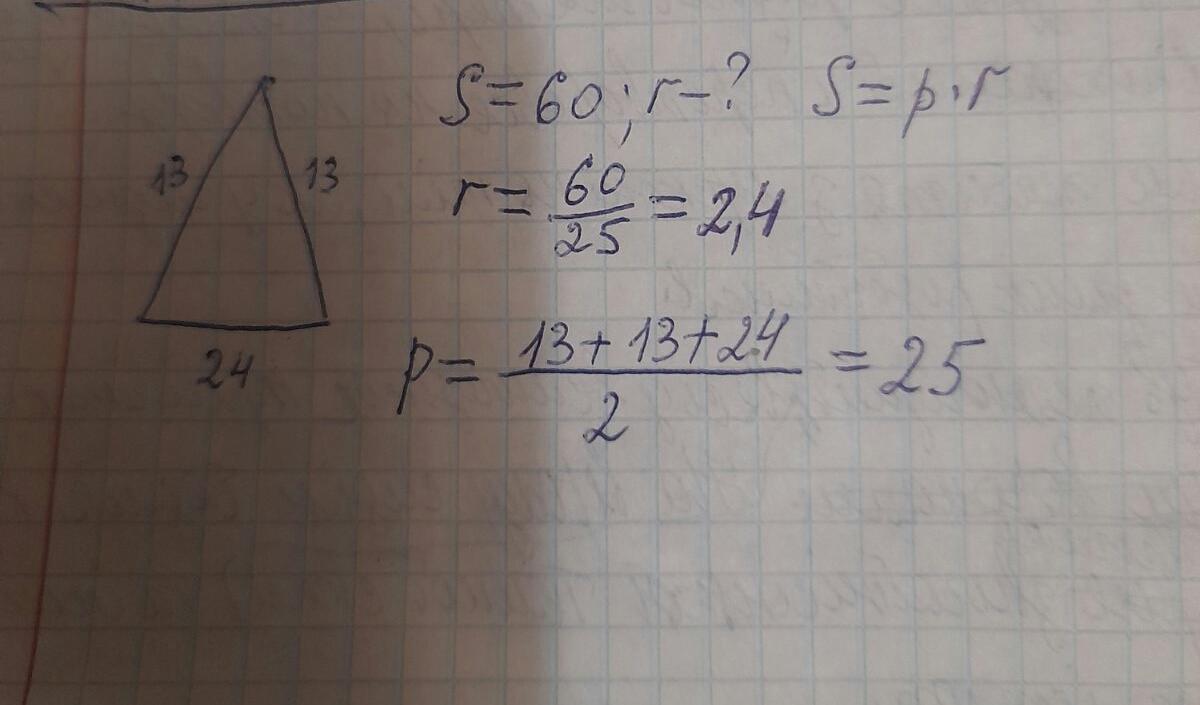 S=60; r-? S=p·r
13 13
r = 60/25 = 2,4
24
p = 13+13+24/2 = 25